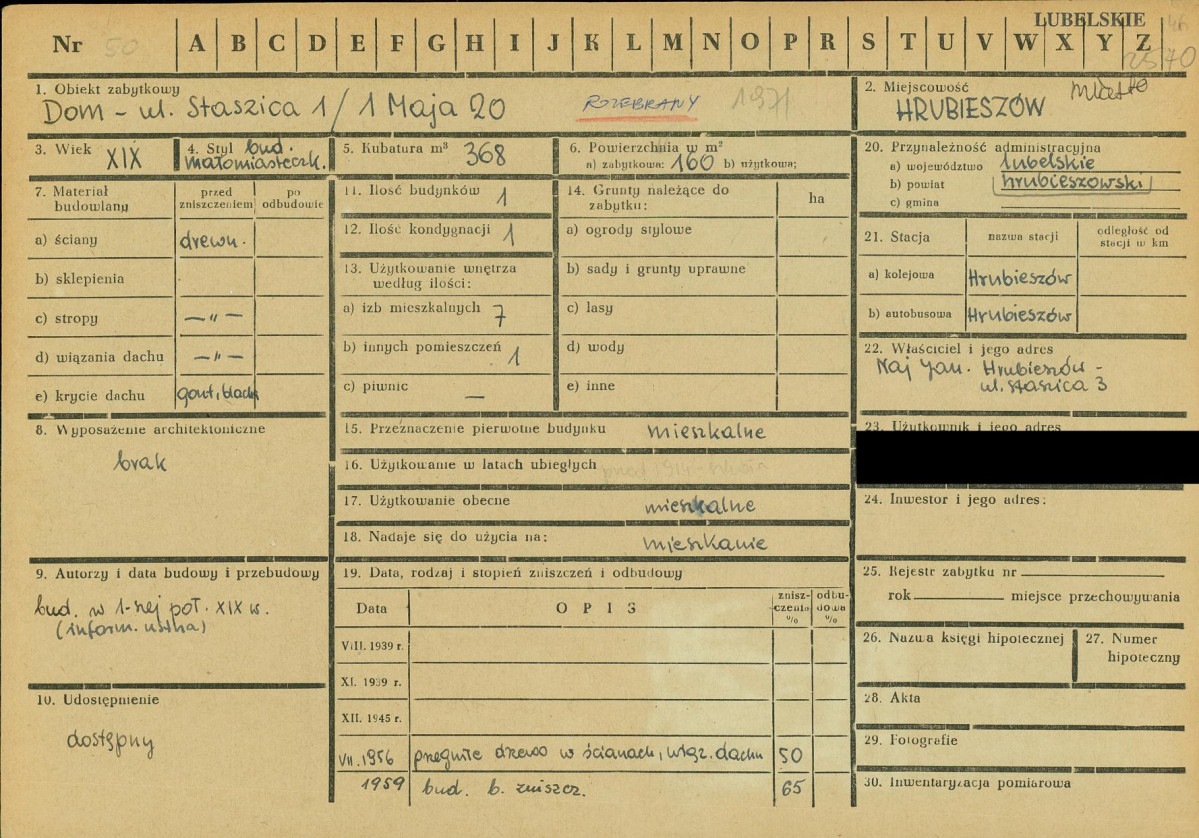 LUBELSKIE 46
Nr 50 A B C D E F G H I J K L M N O P R S T U V W X Y Z
2570
1. Obiekt zabytkowy
Dom - ul. Staszica 1/1 Maja 20 ROZEBRANY 1971
2. Miejscowość miasto
HRUBIESZÓW
3. Wiek XIX
4. Styl bud.
małomiasteczk.
5. Kubatura m³ 368
6. Powierzchnia w m²
a) zabytkowa: 160 b) użytkowa:
7. Materiał budowlany przed zniszczeniem po odbudowie
a) ściany drewn.
b) sklepienia
c) stropy —〃—
d) wiązania dachu —〃—
e) krycie dachu gont, blach
8. Wyposażenie architektoniczne
brak
9. Autorzy i data budowy i przebudowy
bud. w 1-szej poł. XIX w.
(inform. ustna)
10. Udostępnienie
dostępny
11. Ilość budynków 1
12. Ilość kondygnacji 1
13. Użytkowanie wnętrza
według ilości:
a) izb mieszkalnych 7
b) innych pomieszczeń 1
c) piwnic —
14. Grunty należące do
zabytku: ha
a) ogrody stylowe
b) sady i grunty uprawne
c) lasy
d) wody
e) inne
15. Przeznaczenie pierwotne budynku mieszkalne
16. Użytkowanie w latach ubiegłych przed 1914 -
17. Użytkowanie obecne mieszkalne
18. Nadaje się do użycia na: mieszkanie
19. Data, rodzaj i stopień zniszczeń i odbudowy
Data OPIS znisz-czenia % odbu-dowa %
VIII. 1939 r.
XI. 1939 r.
XII. 1945 r.
VII. 1956 przegniłe drzewo w ścianach, wiąz. dachu 50
1959 bud. b. zniszcz. 65
20. Przynależność administracyjna
a) województwo lubelskie
b) powiat hrubieszowski
c) gmina
21. Stacja nazwa stacji odległość od stacji w km
a) kolejowa Hrubieszów
b) autobusowa Hrubieszów
22. Właściciel i jego adres
Naj Jan. Hrubieszów -
ul. Staszica 3
23. Użytkownik i jego adres
24. Inwestor i jego adres:
25. Rejestr zabytku nr
rok miejsce przechowywania
26. Nazwa księgi hipotecznej
27. Numer
hipoteczny
28. Akta
29. Fotografie
30. Inwentaryzacja pomiarowa